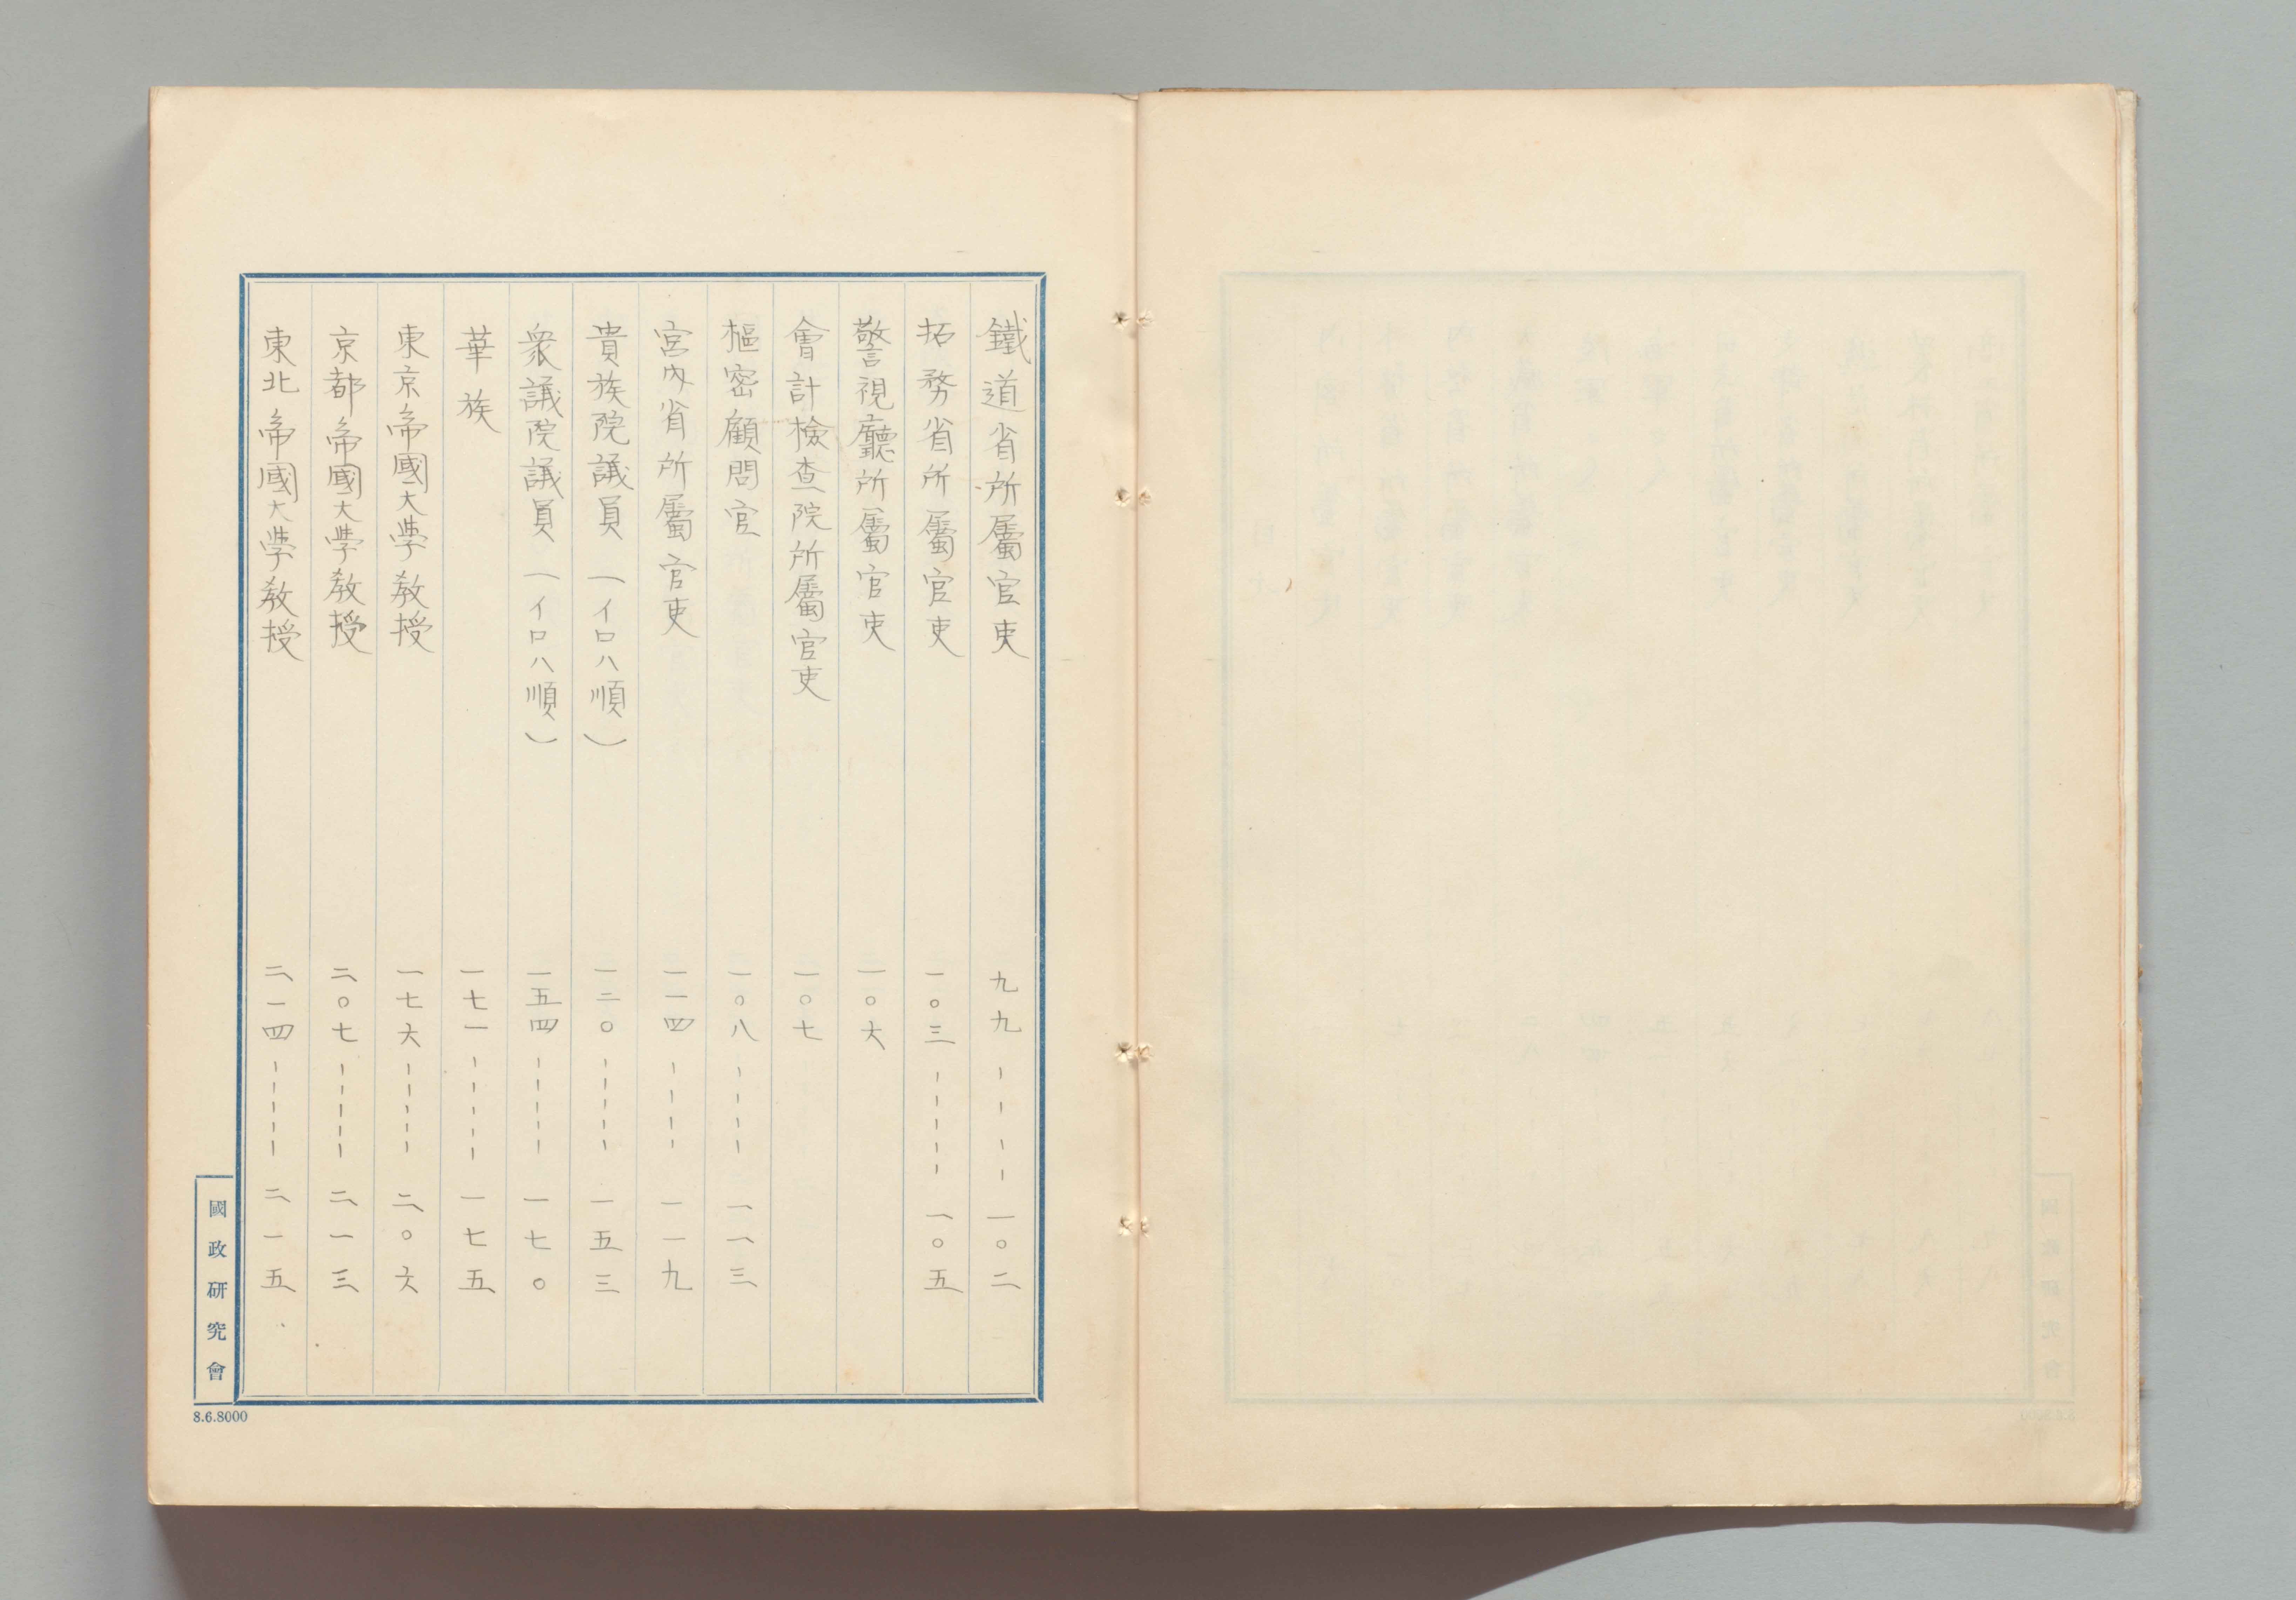 鐵道省所屬官吏 九九-----一〇二
拓務省所屬官吏 一〇三-----一〇五
警視廳所屬官吏 一〇六
會計檢查院所屬官吏 一〇七
樞密顧問官 一〇八----一一三
宮內省所屬官吏 一一四----一一九
貴族院議員(イロハ順) 一二〇-----一五三
衆議院議員(イロハ順) 一五四-----一七〇
華族 一七一-----一七五
東京帝國大學教授 一七六-----二〇六
京都帝國大學教授 二〇七-----二一三
東北帝國大學教授 二一四-----二一五
國政研究會
8.6.8000